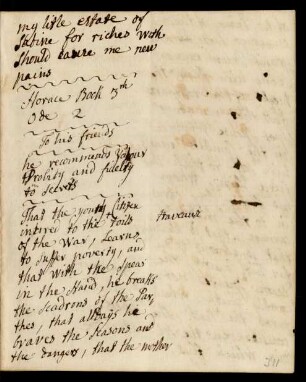 my litle estate of
Sabine for riches wich
should cause me new
pains
Horace Book 3th
Ode 2
To his friends
he recommends Valour
Probity and fidelity
to Secrets
That the young Citizen
inured to the toils
of the War, Learns
to suffer poverty, and
that with the Spear
in the Hand, he breaks
the Scadrons of the Par,
thes, that allways he
braves the Seasons and
the dangers, that the mother